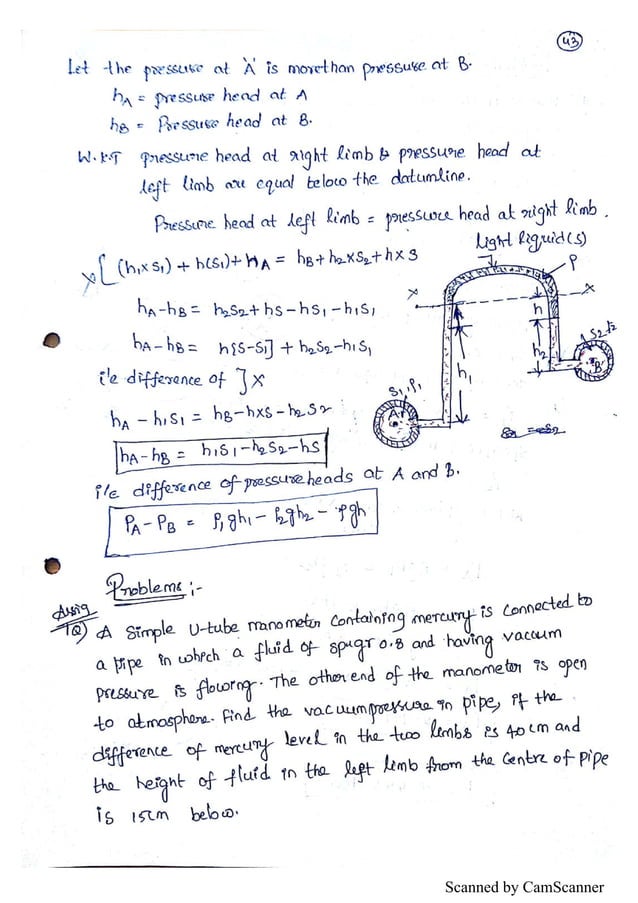 43
Let the pressure at 'A' is morethan pressure at B.
hA = pressure head at A
hB = Pressure head at B.
W.K.T pressure head at right limb & pressure head at
left limb are equal below the datumline.
Pressure head at left limb = pressure head at right limb.
Light liquid(s)
P
x [ (h1×s1) + h(s1) + hA = hB + h2×s2 + h×s
x
x
hA-hB = h2s2 + hs - hs1 - h1s1
h
hA-hB = h{s-s1] + h2s2 - h1s1
h2
h1
B
i'e difference of ] x
S1, P1
A
hA - h1s1 = hB - h×s - h2s2
hA-hB = h1s1 - h2s2 - hs
i'e difference of pressure heads at A and B.
PA-PB = ρ1gh1 - ρ2gh2 - ρgh
Problems :-
Assig
1Q) A Simple U-tube manometer containing mercury is connected to
a pipe in which a fluid of spugr 0.8 and having vacuum
pressure is flowing. The other end of the manometer is open
to atmosphere. Find the vacuumpressure in pipe, if the
difference of mercury level in the two limbs is 40cm and
the height of fluid in the left limb from the centre of pipe
is 15cm below.
Scanned by CamScanner